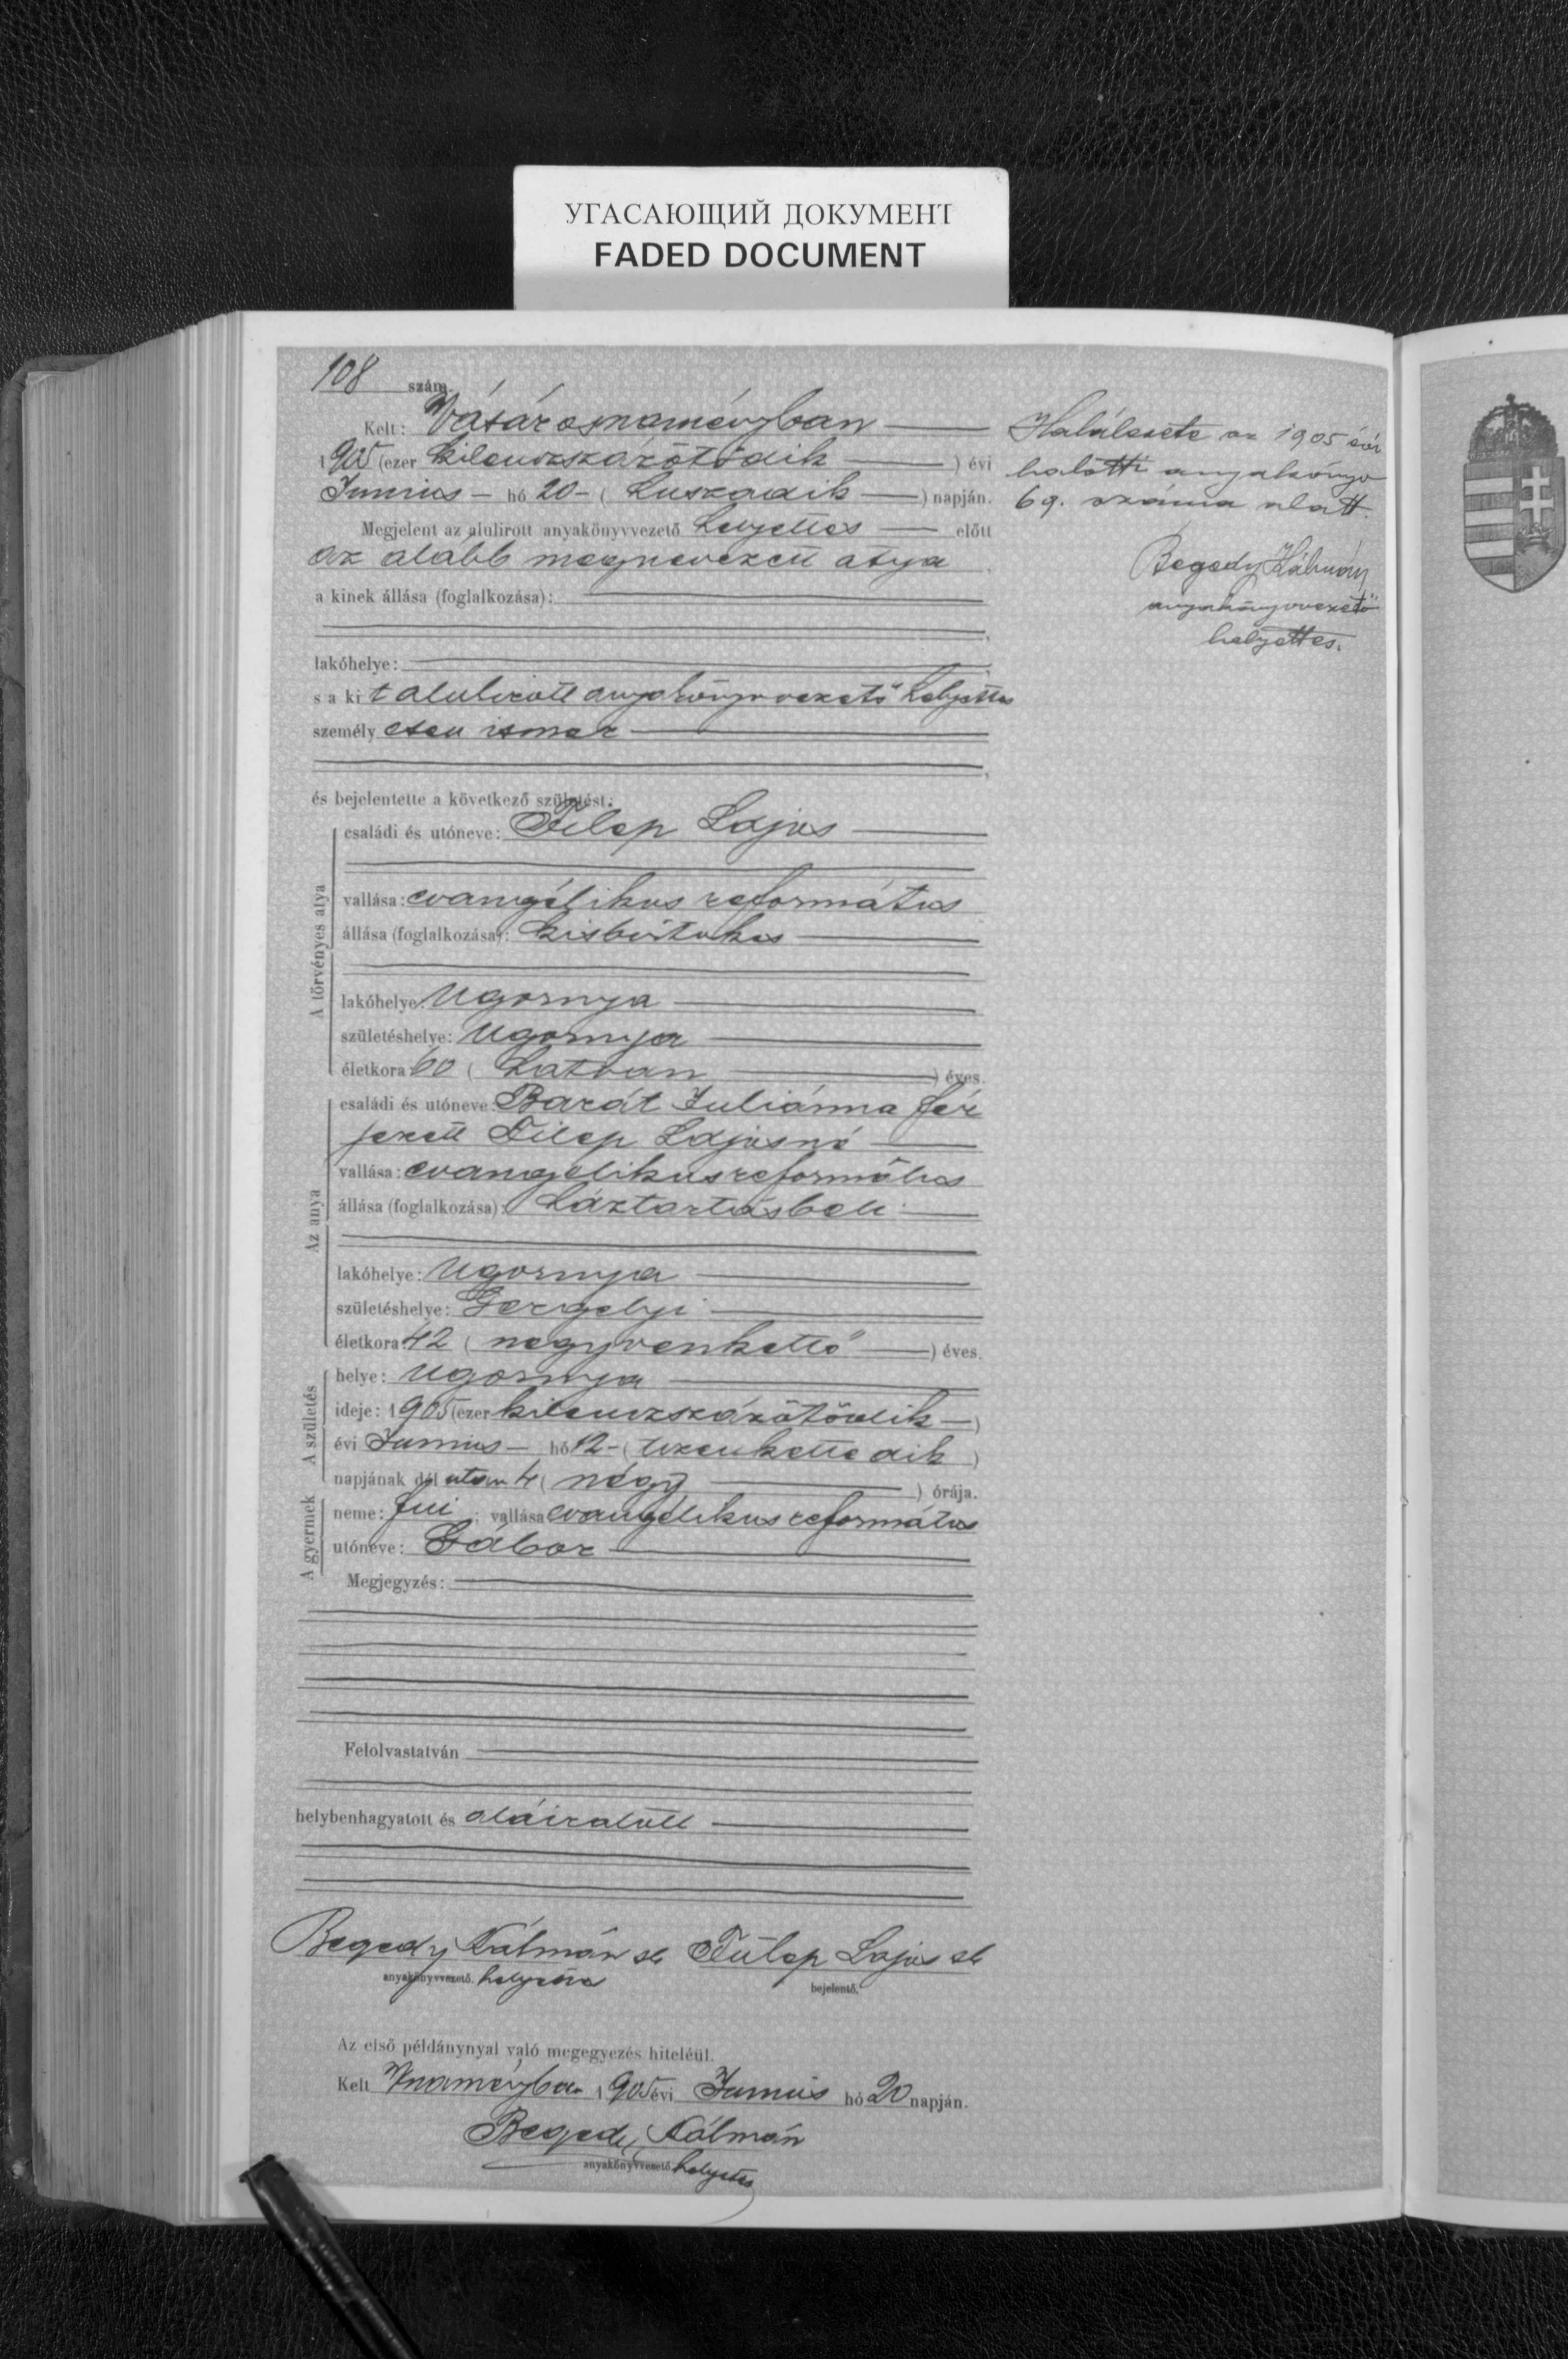 УГАСАЮЩИЙ ДОКУМЕНТ
FADED DOCUMENT
108 szám.
Kelt: Vásárosnaményban
1905 (ezer kilenczszázötödik) évi
Junius hó 20- (huszadik) napján.
Megjelent az alulirott anyakönyvvezető helyettes előtt
az alább megnevezett atya
a kinek állása (foglalkozása):
lakóhelye:
s a kit alulirott anyakönyvvezető helyettes
személyesen ismer
és bejelentette a következő születést:
A törvényes atya
családi és utóneve: Filep Lajos
vallása: evangélikus református
állása (foglalkozása): kisbirtokos
lakóhelye: Ugornya
születéshelye: Ugornya
életkora: 60 (hatvan) éves.
Az anya
családi és utóneve: Barát Juliánna fér
jezett Filep Lajosné
vallása: evangelikus református
állása (foglalkozása): háztartásbeli
lakóhelye: Ugornya
születéshelye: Gergelyi
életkora: 42 (negyvenkettő) éves.
A születés
helye: Ugornya
ideje: 1905 (ezer kilenczszázötödik)
évi Junius hó 12- (tizenkettedik)
napjának dél után 4 (négy) órája.
A gyermek
neme: fiu; vallása evangélikus református
utóneve: Gábor
Megjegyzés:
Felolvastatván
helybenhagyatott és aláiratott
Begedy Kálmán sk Fülep Lajos sk
anyakönyvvezető. helyettes bejelentő.
Az első példánynyal való megegyezés hiteléül.
Kelt Vnaményba 1905 évi Junius hó 20 napján.
Begedy Kálmán
anyakönyvvezető helyettes
Halálesete az 1905 évi
halotti anyakönyv
69. száma alatt.
Begedy Kálmán
anyakönyvvezető
helyettes.